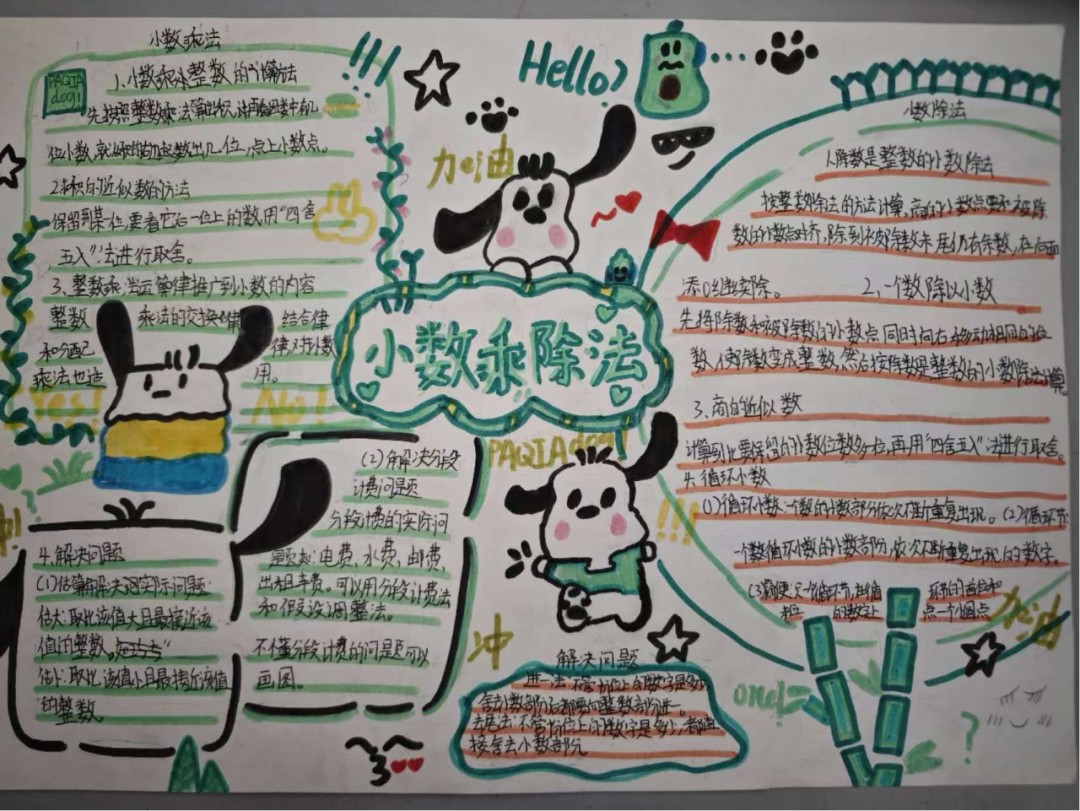 小数乘法
PAQIA
dog!
1、小数乘小整数的计算方法
先按照整数乘法算出积,再看因数中有几
位小数,就从积的右边起数出几位,点上小数点。
2、求积的近似数的方法
保留到某一位,要看它后一位上的数用“四舍
五入”法进行取舍。
3、整数乘法运算律推广到小数的内容
整数 乘法的交换律 结合律
和分配 律对于小数
乘法也适 用。
Yes!
No!
Hello?
加油
小数乘除法
PAQIA dog!
小数除法
1、除数是整数的小数除法
按整数除法的方法计算,商的小数点要和被除
数的小数点对齐,除到被除数末尾仍有余数,在后面
添0继续除。 2、一个数除以小数
先将除数和被除数的小数点同时向右移动相同的位
数,使除数变成整数,然后按除数是整数的小数除法计算。
3、商的近似数
计算到比要保留的小数位数多一位,再用“四舍五入”法进行取舍。
4、循环小数
(1)循环小数:一个数的小数部分依次不断重复出现。(2)循环节:
一个数循环小数的小数部分,依次不断重复出现的数字。
(3)简便 只写一个循环节,并在循 环节的首位和
末位 的数字上 点一个圆点
加油
one!
?
4、解决问题
(1)估算解决问实际问题:
估大:取比该值大且最接近该
值的整数。
估小:取比该值小且最接近该值
的整数。
(2)解决分段
计费问题
分段计费的实际问
题如:电费、水费、邮费、
出租车费。可以用分段计费法
和假设调整法。
不懂分段计费的问题可以
画图。
冲
解决问题
进一法:不管十分位上的数字是多少,
舍小数部分后都要向整数部分进一。
去尾法:不管十分位上的数字是多少,都直
接舍去小数部分